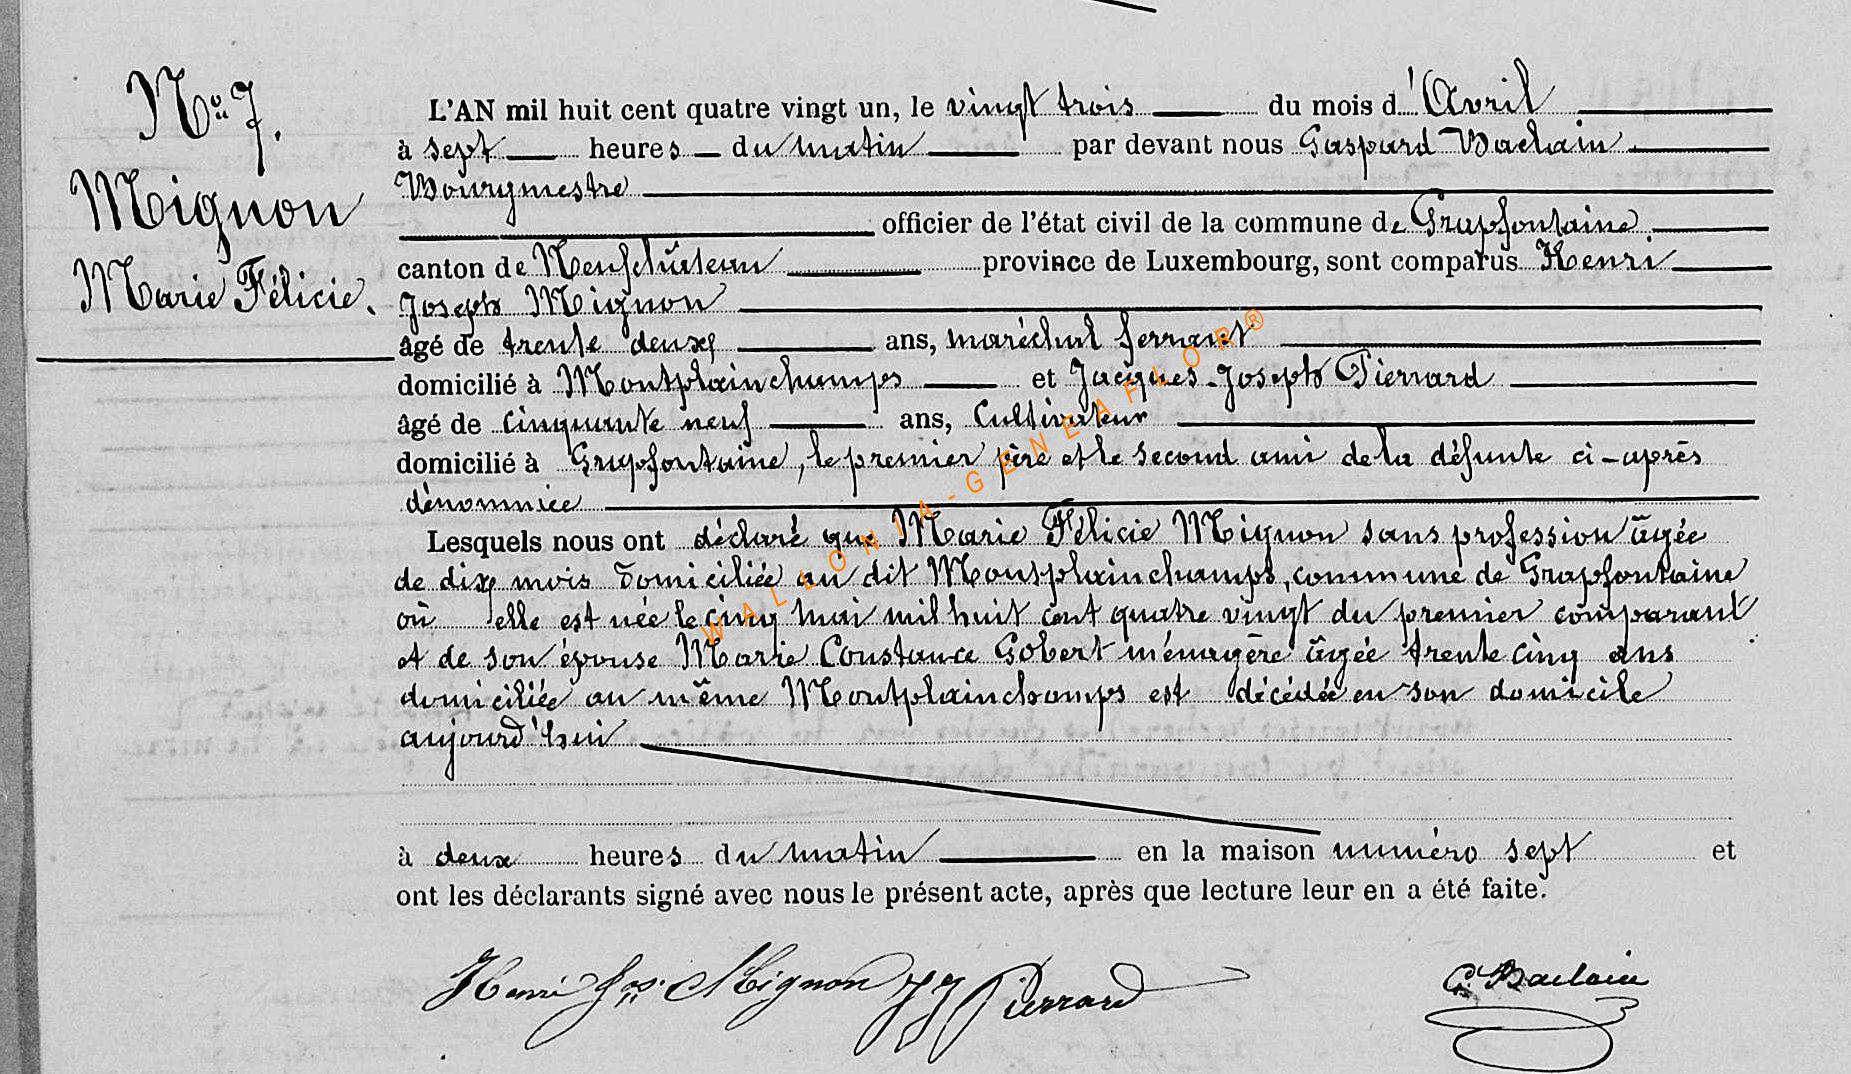 No 7.
Mignon
Marie Félicie.
L'AN mil huit cent quatre vingt un, le vingt trois du mois d'Avril
à sept heures du matin par devant nous Gaspard Baclain
Bourgmestre
officier de l'état civil de la commune de Grapfontaine
canton de Neufchâteau province de Luxembourg, sont comparus Henri
Joseph Mignon
âgé de trente deux ans, maréchal ferrant
domicilié à Montplainchamps et Jacques Joseph Pierrard
âgé de cinquante neuf ans, Cultivateur
domicilié à Grapfontaine, le premier père et le second ami de la défunte ci-après
dénommée
Lesquels nous ont déclaré que Marie Félicie Mignon sans profession âgée
de dix mois domiciliée au dit Montplainchamps, commune de Grapfontaine
où elle est née le cinq mai mil huit cent quatre vingt du premier comparant
et de son épouse Marie Constance Gobert ménagère âgée trente cinq ans
domiciliée au même Montplainchamps est décédée en son domicile
aujourd'hui
à deux heures du matin en la maison numéro sept et
ont les déclarants signé avec nous le présent acte, après que lecture leur en a été faite.
Henri Jos. Mignon JJ Pierrard G. Baclain
WALLONIA-GENEAFLOR®